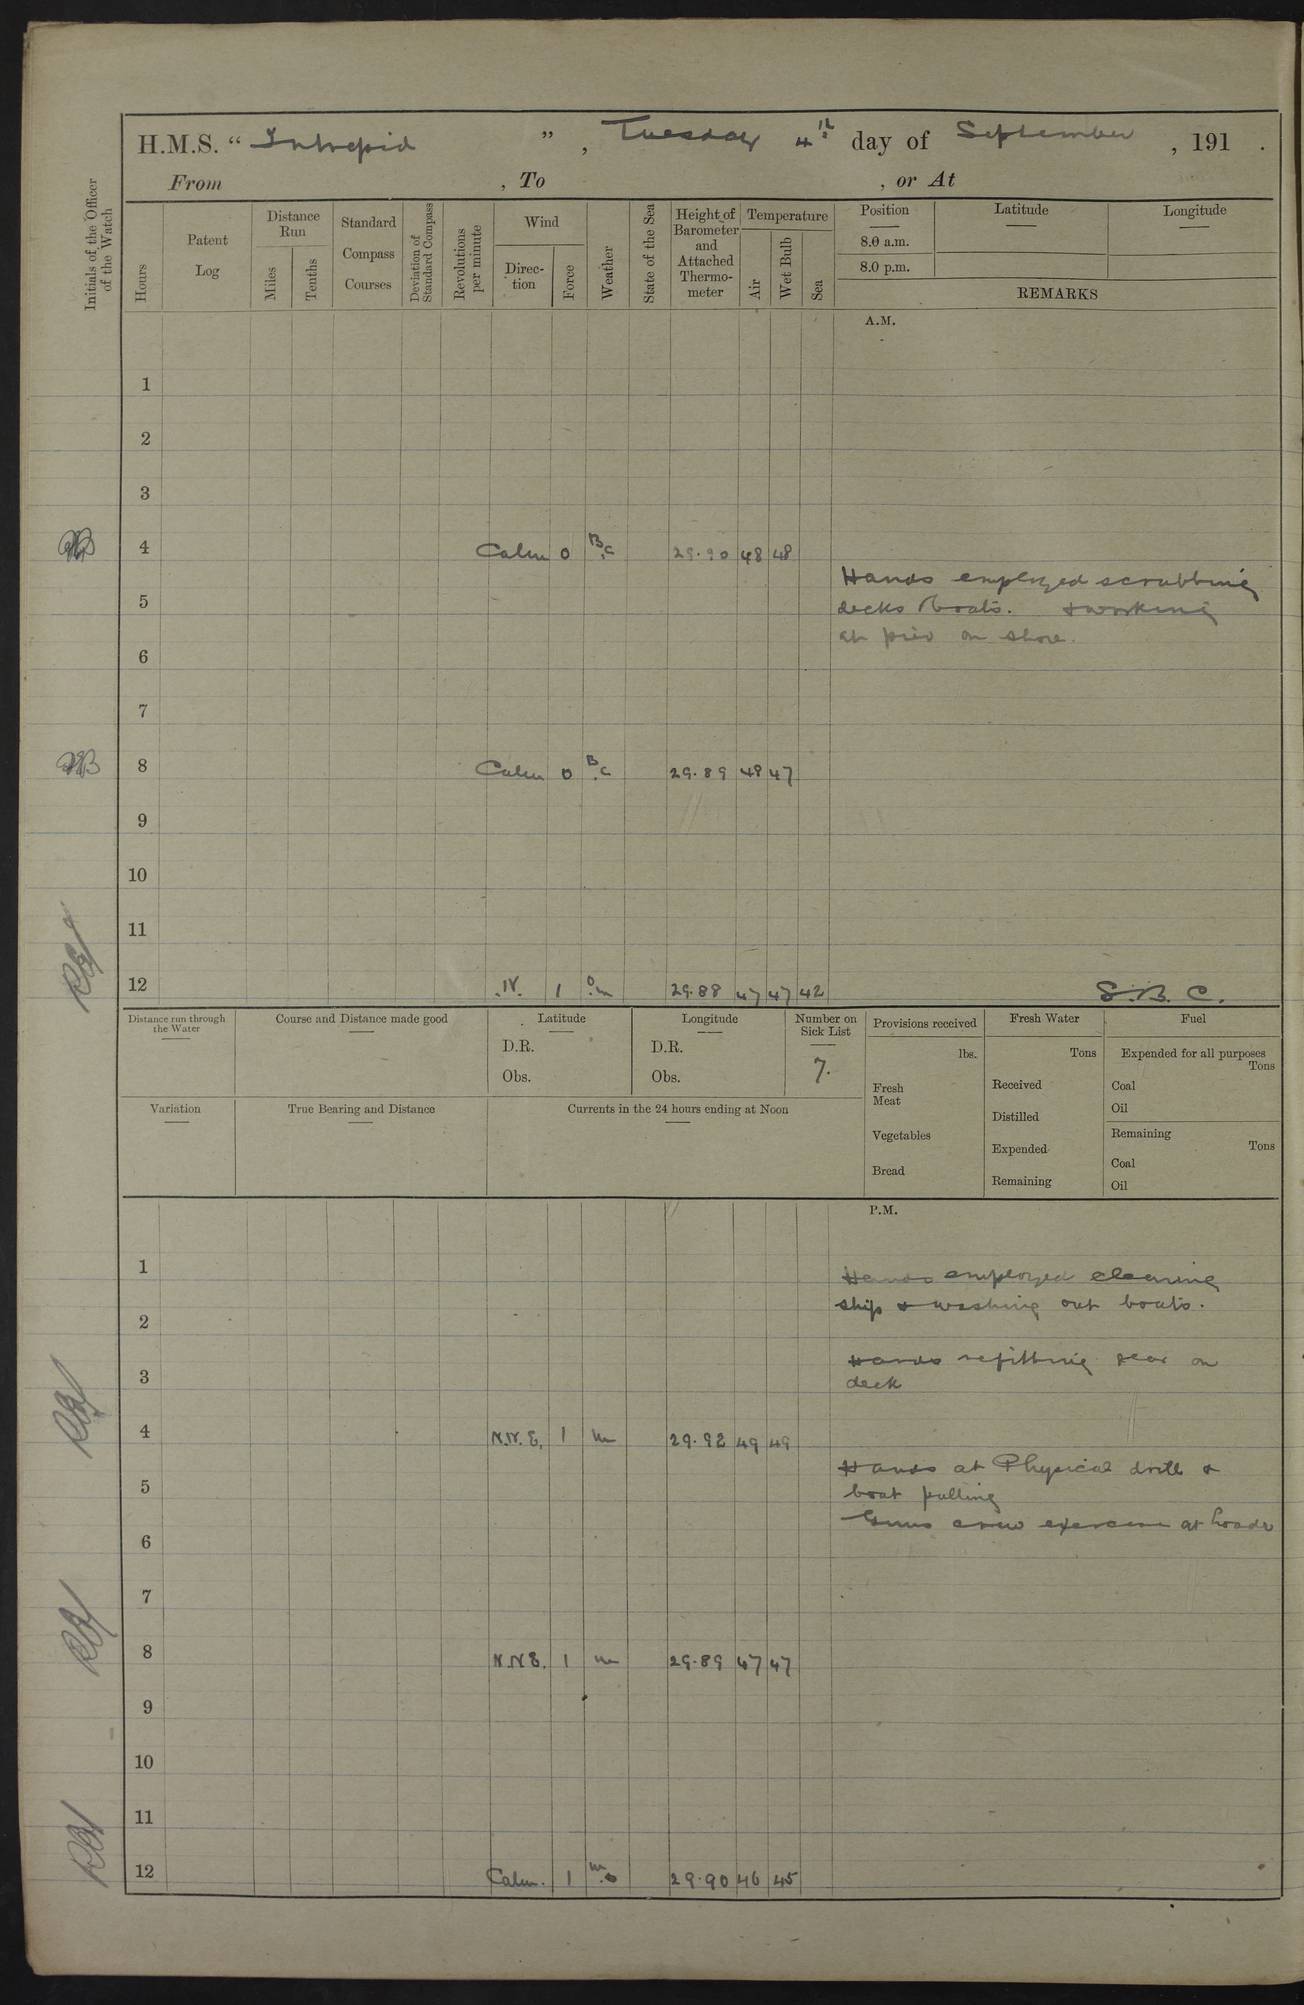 H.M.S. “ Intrepid ” , Tuesday 4th day of September , 191 .
From , To , or At
Initials of the Officer of the Watch
Hours
Patent Log
Distance Run
Miles
Tenths
Standard Compass Courses
Deviation of Standard Compass
Revolutions per minute
Wind
Direc- tion
Force
Weather
State of the Sea
Height of Barometer and Attached Thermo- meter
Temperature
Air
Wet Bulb
Sea
Position
Latitude
Longitude
8.0 a.m.
8.0 p.m.
REMARKS
A.M.
1
2
3
4 Calm 0 B.C 29.90 48 48
Hands employed scrubbing
5 decks boats. & working
at pier on shore.
6
7
8 Calm 0 B.C 29.89 48 47
9
10
11
12 N. 1 o.m 29.88 47 47 42 S.B.C.
Distance run through the Water
Course and Distance made good
Latitude
D.R.
Obs.
Longitude
D.R.
Obs.
Number on Sick List
7.
Provisions received
lbs.
Fresh Meat
Vegetables
Bread
Fresh Water
Tons
Received
Distilled
Expended
Remaining
Fuel
Expended for all purposes
Tons
Coal
Oil
Remaining
Tons
Coal
Oil
Variation
True Bearing and Distance
Currents in the 24 hours ending at Noon
P.M.
1 Hands employed cleaning
ship & washing out boats.
2
Hands refitting gear on
3 deck
4 N.N.E. 1 m 29.92 49 49
Hands at Physical drill &
5 boat pulling
Guns crew exercise at loader
6
7
8 N.N.E. 1 m 29.89 47 47
9
10
11
12 Calm. 1 m.o 29.90 46 45